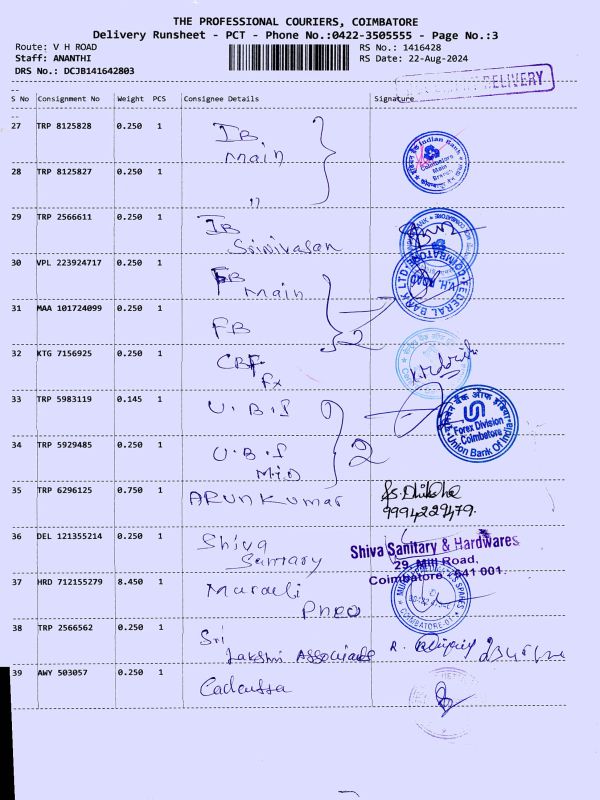 THE PROFESSIONAL COURIERS, COIMBATORE
Delivery Runsheet - PCT - Phone No.:0422-3505555 - Page No.:3
Route: V H ROAD
Staff: ANANTHI
DRS No.: DCJB141642803
RS No.: 1416428
RS Date: 22-Aug-2024
DELIVERY
S No Consignment No Weight PCS Consignee Details Signature
27 TRP 8125828 0.250 1 IB
Main
Indian Bank
Coimbatore
Main
Branch
28 TRP 8125827 0.250 1 "
29 TRP 2566611 0.250 1 IB
Srinivasan
30 VPL 223924717 0.250 1 FB
Main
FEDERAL BANK LTD
V.H. ROAD
COIMBATORE
31 MAA 101724099 0.250 1 FB
2
32 KTG 7156925 0.250 1 CBF
Fx
33 TRP 5983119 0.145 1 U.B.I
यूनियन बैंक ऑफ इंडिया
Forex Division
Coimbatore
Union Bank Of India
34 TRP 5929485 0.250 1 U.B.I
M.i.D
2
35 TRP 6296125 0.750 1 ARUNKUMAR
9994229479.
36 DEL 121355214 0.250 1 Shiva
Sanitary
Shiva Sanitary & Hardwares
29, Mill Road,
Coimbatore - 641 001.
37 HRD 712155279 8.450 1
COIMBATORE-01
38 TRP 2566562 0.250 1 Sri
Lakshmi Associates R.
39 AWY 503057 0.250 1